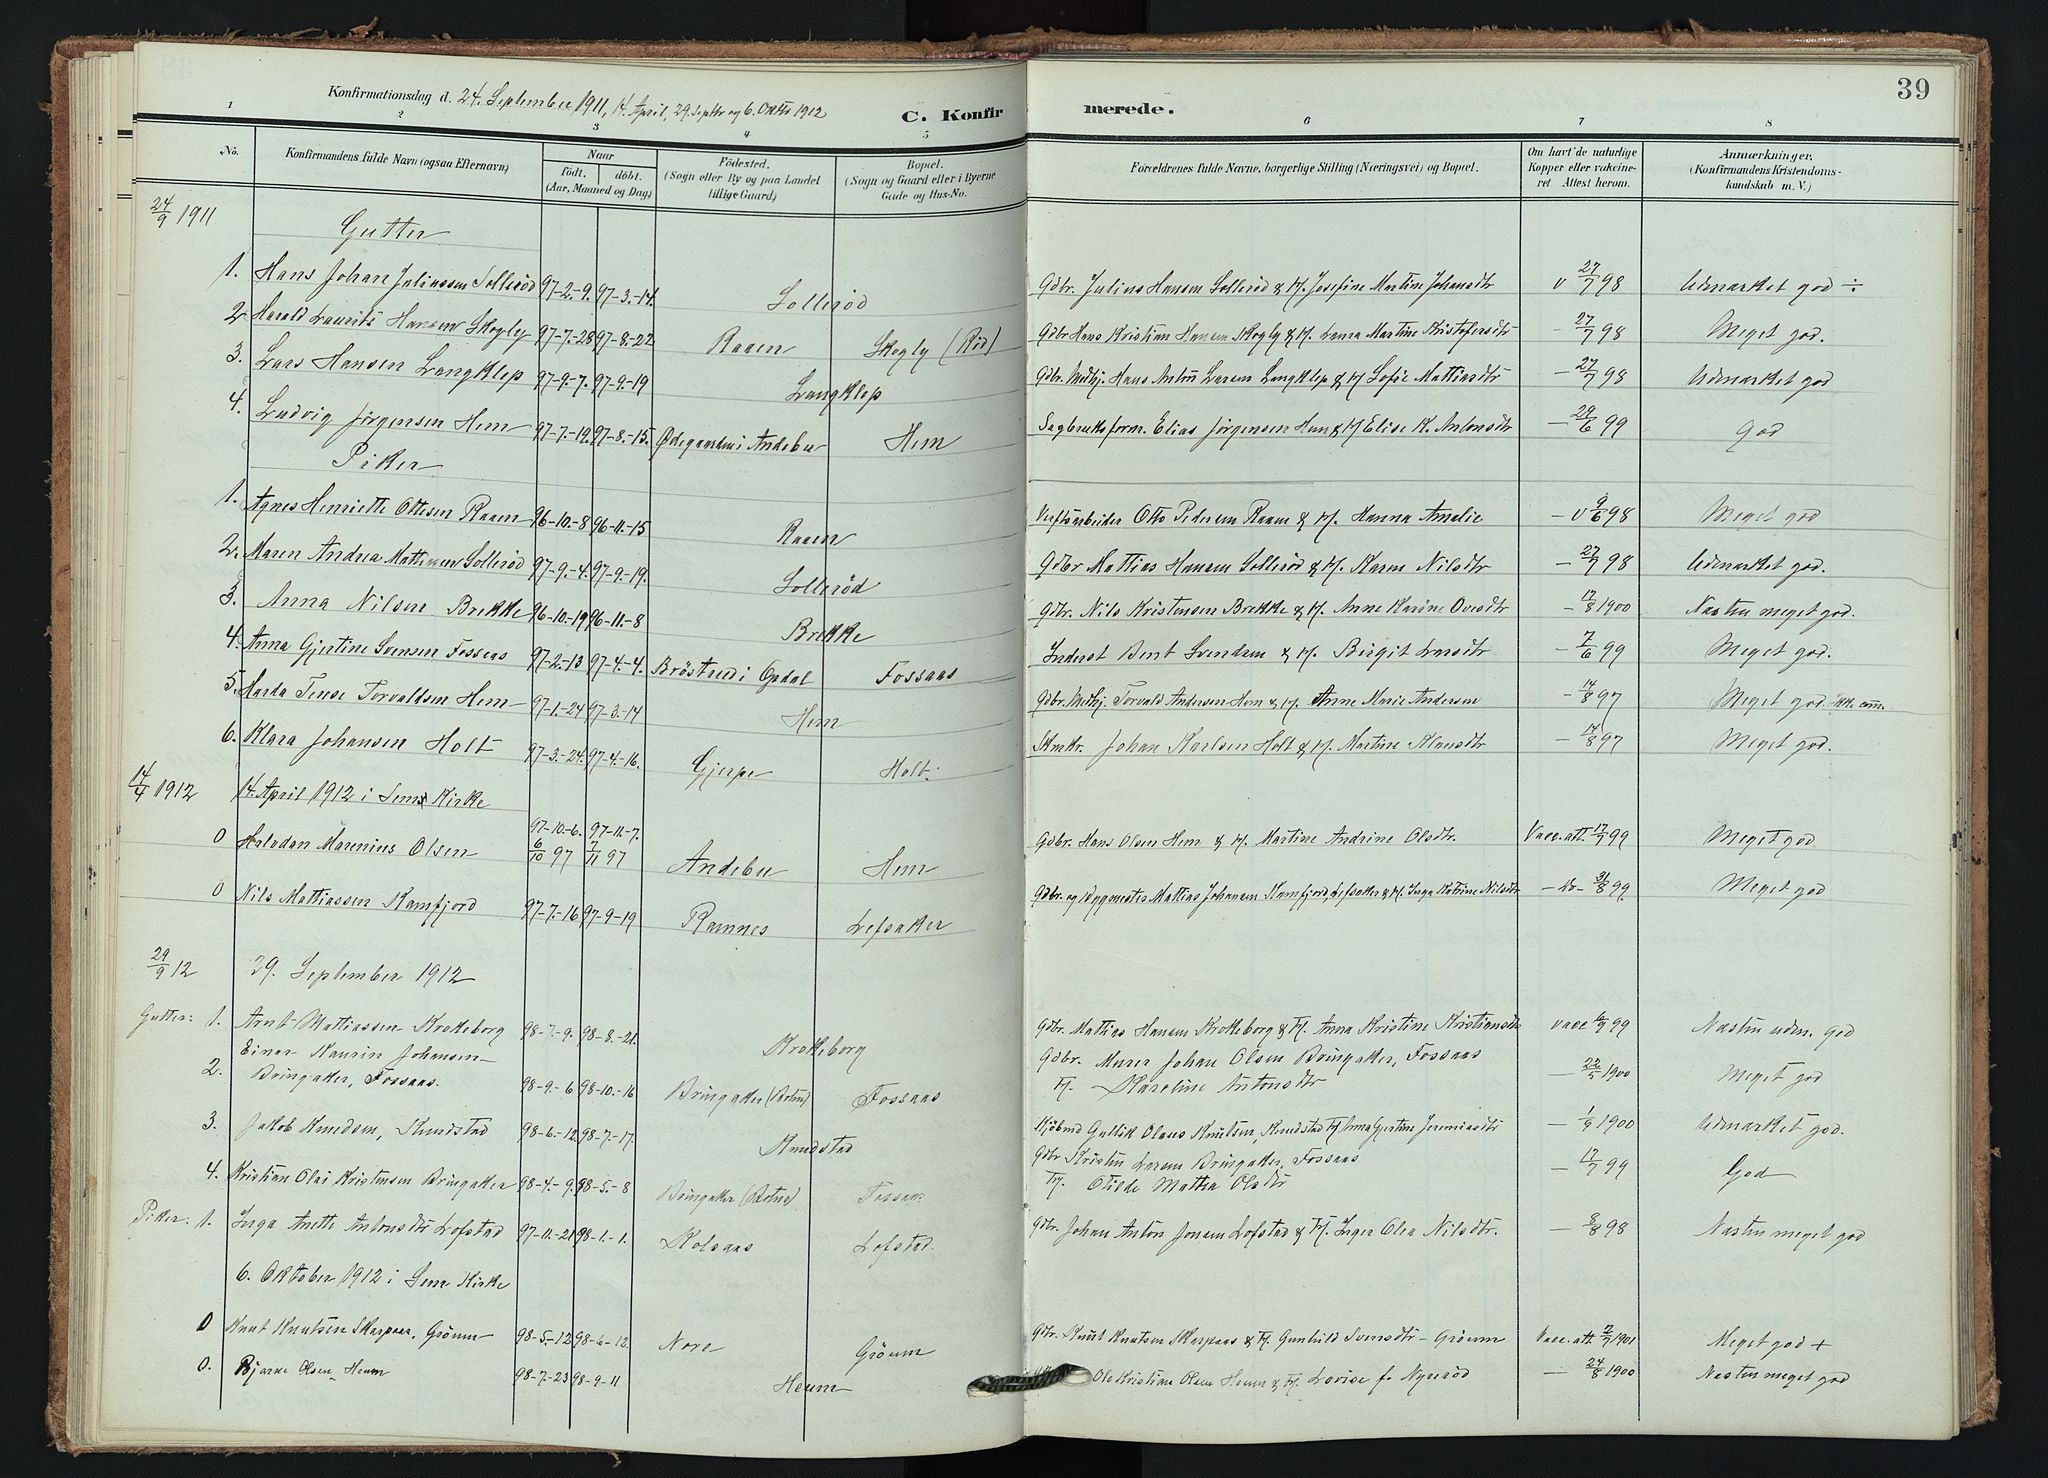 39
Konfirmationsdag d. 24. September 1911, 14 April, 29. Septbr og 6. Oktb 1912
C. Konfirmerede.
1 2 3 4 5 6 7 8
No. Konfirmandens fulde Navn (ogsaa Efternavn) Naar født. døbt. (Aar, Maaned og Dag) Fødested. (Sogn eller By og paa Landet tillige Gaard) Bopæl. (Sogn og Gaard eller i Byerne Gade og Hus-No. Forældrenes fulde Navne, borgerlige Stilling (Næringsvei) og Bopæl. Om havt de naturlige Kopper eller vakcineret. Attest herom. Anmærkninger. (Konfirmandens Kristendomskundskab m. V.)
24/9 1911
Gutter
1. Hans Johan Juliussen Sollerød 97-2-9. 97-3-14. Sollerød Gdbr. Julius Hansen Sollerød & H. Josefine Martine Johansdtr v 27/7 98 Udmærket god ÷
2 Harald Laurits Hansen Skogly 97-7-28 97-8-22 Raaen Skogly (Rød) Gdbr Hans Kristian Hansen Skogly & H. Laura Martine Kristofersdtr - 27/7 98 Meget god.
3. Lars Hansen Langklep 97-9-7. 97-9-19 Langklep Gdbr. Hans Anton Larsen Langklep & H Sofie Mattiasdtr - 27/7 98 Udmærket god
4. Ludvig Jørgensen Hem 97-7-19. 97-8-15. Ødegaarden i Andebu Hem Sagbruksform. Elias Jørgensen Hem & H Elise K. Antonsdtr - 29/6 99 God
Piker
1. Agnes Henriette Ottesen Raaen 96-10-8 96-11-15 Raaen Verftsarbeider Otto Pedersen Raaen & H. Hanna Amalie - v 9/6 98 Meget god
2. Maren Andrea Mathisen Sollerød 97-9-4. 97-9-19. Sollerød Gdbr Mattias Hansen Sollerød & H. Karen Nilsdtr - 27/7 98 Udmærket god.
3. Anna Nilsen Brekke 96-10-19 96-11-8 Brekke Gdbr. Nils Kristensen Brekke & H. Anne Karine Ovesdtr - 17/8 1900 Næsten meget god.
4. Anna Gjertine Svensen Fossaas 97-2-13 97-4-4. Brøstrud i Opdal Fossaas Inderst Bent Svendsen & H. Birgit Larsdtr - 7/6 99 Meget god.
5. Marta Tense Torvaldsen Hem 97-1-24 97-3-14 Hem Gdbr. Torvald Andersen Hem & H. Anne Marie Andersen - 14/8 97 Meget god.
6. Klara Johansen Holt 97-3-24. 97-4-16. Gjerpe Holt. Johan Karlsen Holt & H. Martine Klausdtr - 14/8 97 Meget god.
14/4 1912 14 April 1912 i Sem Kirke
0 Halvdan Marenius Olsen 97-10-6. 97-11-7. 6/10 97 7/11 97 Andebu Hem Gdbr. Hans Olsen Hem & H. Martine Andrine Olsdtr. Vacc. att. 17/7 99 Meget god
0 Nils Mattiassen Kamfjord 97-7-16 97-9-19 Ramnes Lefsaker Gdbr. og Bygmester Mattias Johansen Kamfjord, Lefsaker & H. Inga Katrine Nilsdtr - Do - 31/8 99. Meget god
29/9 12 29. September 1912
Gutter: 1. Arnt Mattiassen Krokeborg 98-7-9. 98-8-21. Krokeborg Gdbr. Mattias Hansen Krokeborg & H. Anna Kristine Kristiansdtr vacc 6/9 99 Næsten udm. god
2. Einar Kaurin Johansen Bringaker, Fossaas. 98-9-6 98-10-16 Bringaker (Botne) Fossaas Gdbr. Murer Johan Olsen Bringaker, Fossaas H. Karoline Antonsdtr - 22/5 1900 Meget god
3. Jakob Knudsen, Knudstad 98-6-12 98-7-17. Knudstad Gullik Olaus Knutsen, Knudstad H Gjertine Jeremiasdtr - 1/9 1900 Udmærket god.
4. Kristian Olai Kristensen Bringaker 98-4-9. 98-5-8 Bringaker (Botne) Fossaas Gdbr Kristen Larsen Bringaker, Fossaas H. Otilde Mattea Olsdtr - 17/7 99 God
Piker: 1. Inga Anette Antonsdtr Lofstad 97-11-21 98-1-1. Kolsaas Lofstad. Gdbr. Johan Anton Jonsen Lofstad & H. Inger Olea Nilsdtr. - 8/8 98 Næsten meget god
6. Oktober 1912 i Sem Kirke
0 Knut Knutsen Skarpaas, Grøum 98-5-12 98-6-12. Nore Grøum Gdbr. Knut Knutsen Skarpaas & H. Gunhild Svensdtr - Grøum Vacc. att. 2/7 1901 Meget god +
0. Bjarne Olsen Heum 98-7-23 98-9-11 Heum Ole Kristian Olsen Heum & H. Lovise f. Nyerød - 24/8 1900 Næsten meget god